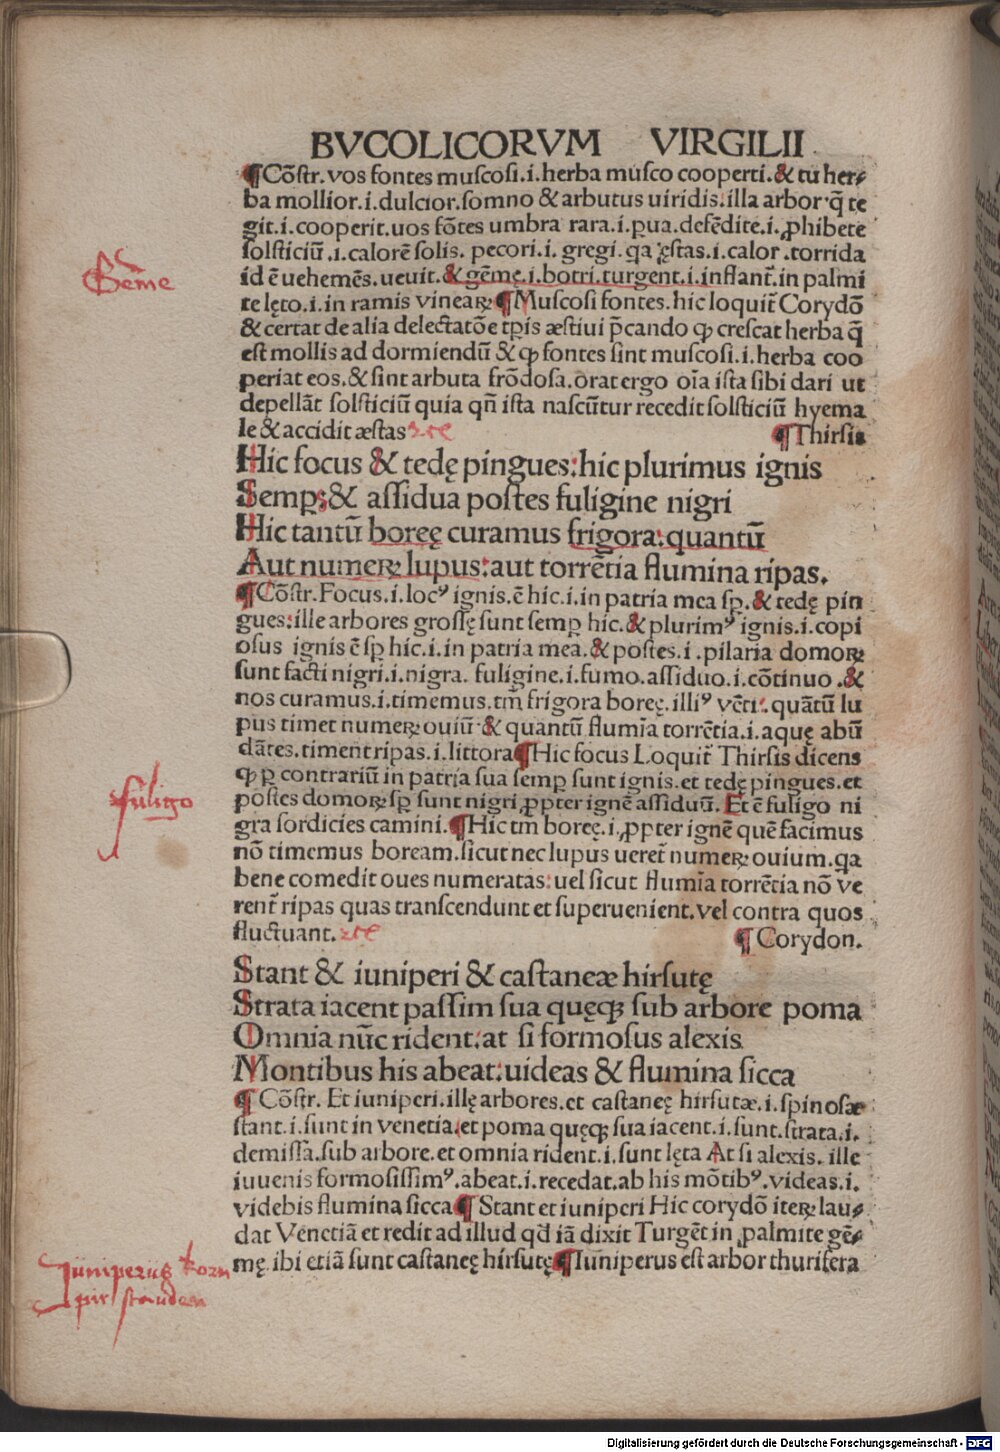 BVCOLICORVM VIRGILII
¶Cõstr. vos fontes muscosi.i.herba musco cooperti.& tu her⸗
ba mollior.i.dulcior.somno & arbutus uiridis.illa arbor q̃ te
git.i.cooperit.uos fõtes umbra rara.i.ꝑua.defẽdite.i.ꝓhibete
solsticiũ.i.calorẽ solis. pecori.i. gregi. qa ęstas.i.calor.torrida
id ẽ uehemẽs.ueuit.& gẽmę.i.botri.turgent.i.inflant̃.in palmi
Gẽme
te lęto.i.in ramis vineaꝝ ¶Muscosi fontes.hic loquit̃ Corydõ
& certat de alia delectatõe tꝑis æstiui p̃cando ꝙ crescat herba q̃
est mollis ad dormiendũ & ꝙ fontes sint muscosi.i.herba coo
periat eos.& sint arbuta frõdosa.orat ergo oĩa ista sibi dari ut
depellãt solsticiũ quia qñ ista nascũtur recedit solsticiũ hyema
le & accidit æstas ⁊cꝭ ¶Thirsis
Hic focus & tedę pingues:hic plurimus ignis
Semꝑ:& assidua postes fuligine nigri
Hic tantũ boreę curamus frigora:quantũ
Aut numeꝝ lupus:aut torrẽtia flumina ripas.
¶Cõstr.Focus.i.locꝰ ignis.ẽ hic.i.in patria mea sꝑ.& tedę pin
gues:ille arbores grossę sunt semꝑ hic.& plurimꝰ ignis.i.copi
osus ignis ẽ sꝑ hic.i.in patria mea.& postes.i.pilaria domoꝝ
sunt facti nigri.i.nigra. fuligine.i.fumo.assiduo.i.cõtinuo.&
nos curamus.i.timemus.tm̃ frigora boreę.illiꝰ vẽti.quãtũ lu
pus timet numeꝝ ouiũ & quantũ flumĩa torrẽtia.i.aquę abũ
dãtes.timent ripas.i.littora ¶Hic focus Loquit̃ Thirsis dicens
ꝙ ꝑ contrariũ in patria sua semꝑ sunt ignis.et tedę pingues.et
postes domoꝝ sꝑ sunt nigri ꝓpter ignẽ assiduũ. Et ẽ fuligo ni
fuligo
gra sordicies camini.¶Hic tm̃ boreę.i.ꝓpter ignẽ quẽ facimus
nõ timemus boream.sicut nec lupus ueret̃ numeꝝ ouium.qa
bene comedit oues numeratas:uel sicut flumĩa torrẽtia nõ ve
rent̃ ripas quas transcendunt et superuenient.vel contra quos
fluctuant. ⁊cꝭ ¶Corydon.
Stant & iuniperi & castaneæ hirsutę
Strata iacent passim sua quęqꝫ sub arbore poma
Omnia nũc rident:at si formosus alexis
Montibus his abeat:uideas & flumina sicca
¶ Cõstr. Et iuniperi.illę arbores.et castaneę hirsutæ.i.spinosæ
stant.i.sunt in venetia.et poma quęqꝫ sua iacent.i.sunt.strata.i.
demissa.sub arbore.et omnia rident.i.sunt lęta At si alexis.ille
iuuenis formosissimꝰ.abeat.i.recedat.ab his mõtibꝰ.videas.i.
videbis flumina sicca ¶ Stant et iuniperi Hic corydõ iteꝝ lau⸗
dat Venetiã et redit ad illud qđ iã dixit Turgẽt in palmite gẽ⸗
mę.ibi etiã sunt castaneę hirsutę ¶Iuniperus est arbor thurifera
Juniperus
Digitalisierung gefördert durch die Deutsche Forschungsgemeinschaft - DFG